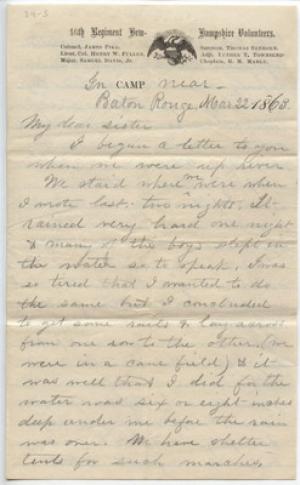 24-3
16th Regiment New-Hampshire Volunteers.
Colonel, JAMES PIKE.
Lieut. Col. HENRY W. FULLER.
Major, SAMUEL DAVIS, Jr.
Surgeon, THOMAS SANBORN.
Adjt. LUTHER T. TOWNSEND
Chaplain, R. M. MANLY.
In CAMP near -
Baton Rouge, Mar 22 1863.
My dear sister
I began a letter to you
when we were up river
We staid where we were when
I wrote last, two nights. It
rained very hard one night
& many of the boys slept in
the water so to speak. I was
so tired that I wanted to do
the same but I concluded
to get some rails & lay across
from one row to the other. (we
were in a cane field) & it
was well that I did for the
water was six or eight inches
deep under me before the rain
was over. We have shelter
tents for such marches